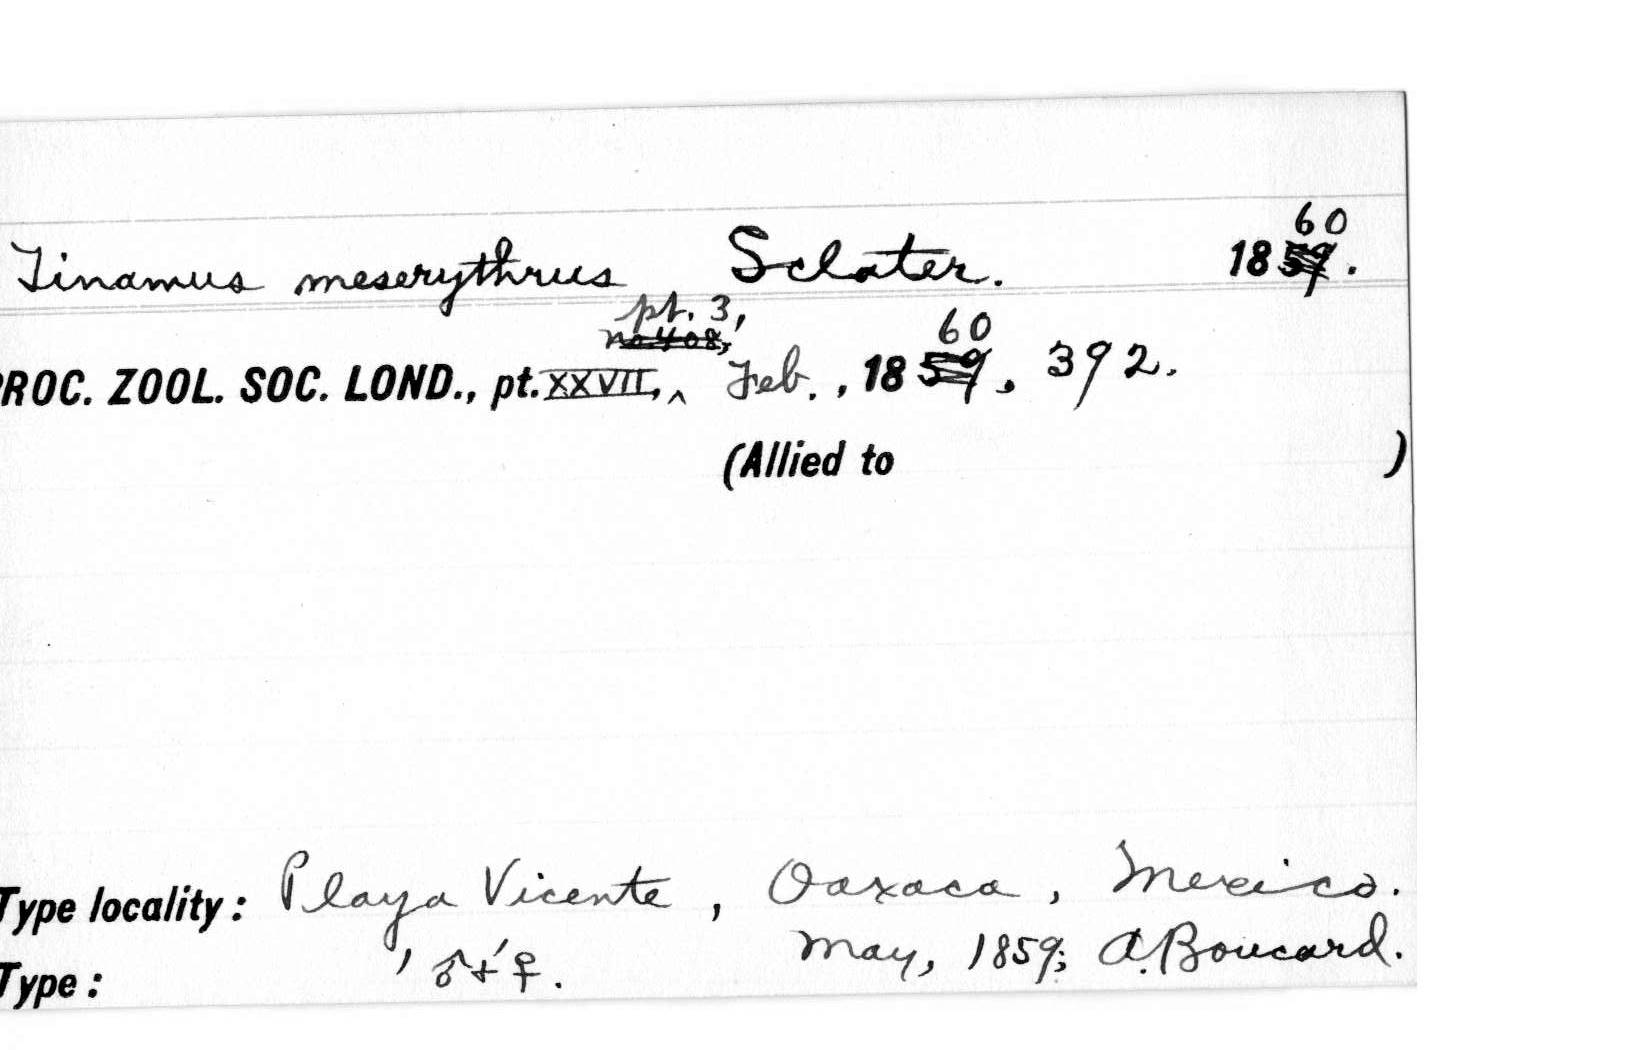 60
Tinamus meserythrus Sclater. 1859.
pt. 3,
no. 408,
60
ROC. ZOOL. SOC. LOND., pt. XXVII, ^ Feb., 1859, 392.
(Allied to )
Type locality: Playa Vicente, Oaxaca, Mexico.
Type: ' ♂ + ' ♀. May, 1859; A. Boucard.